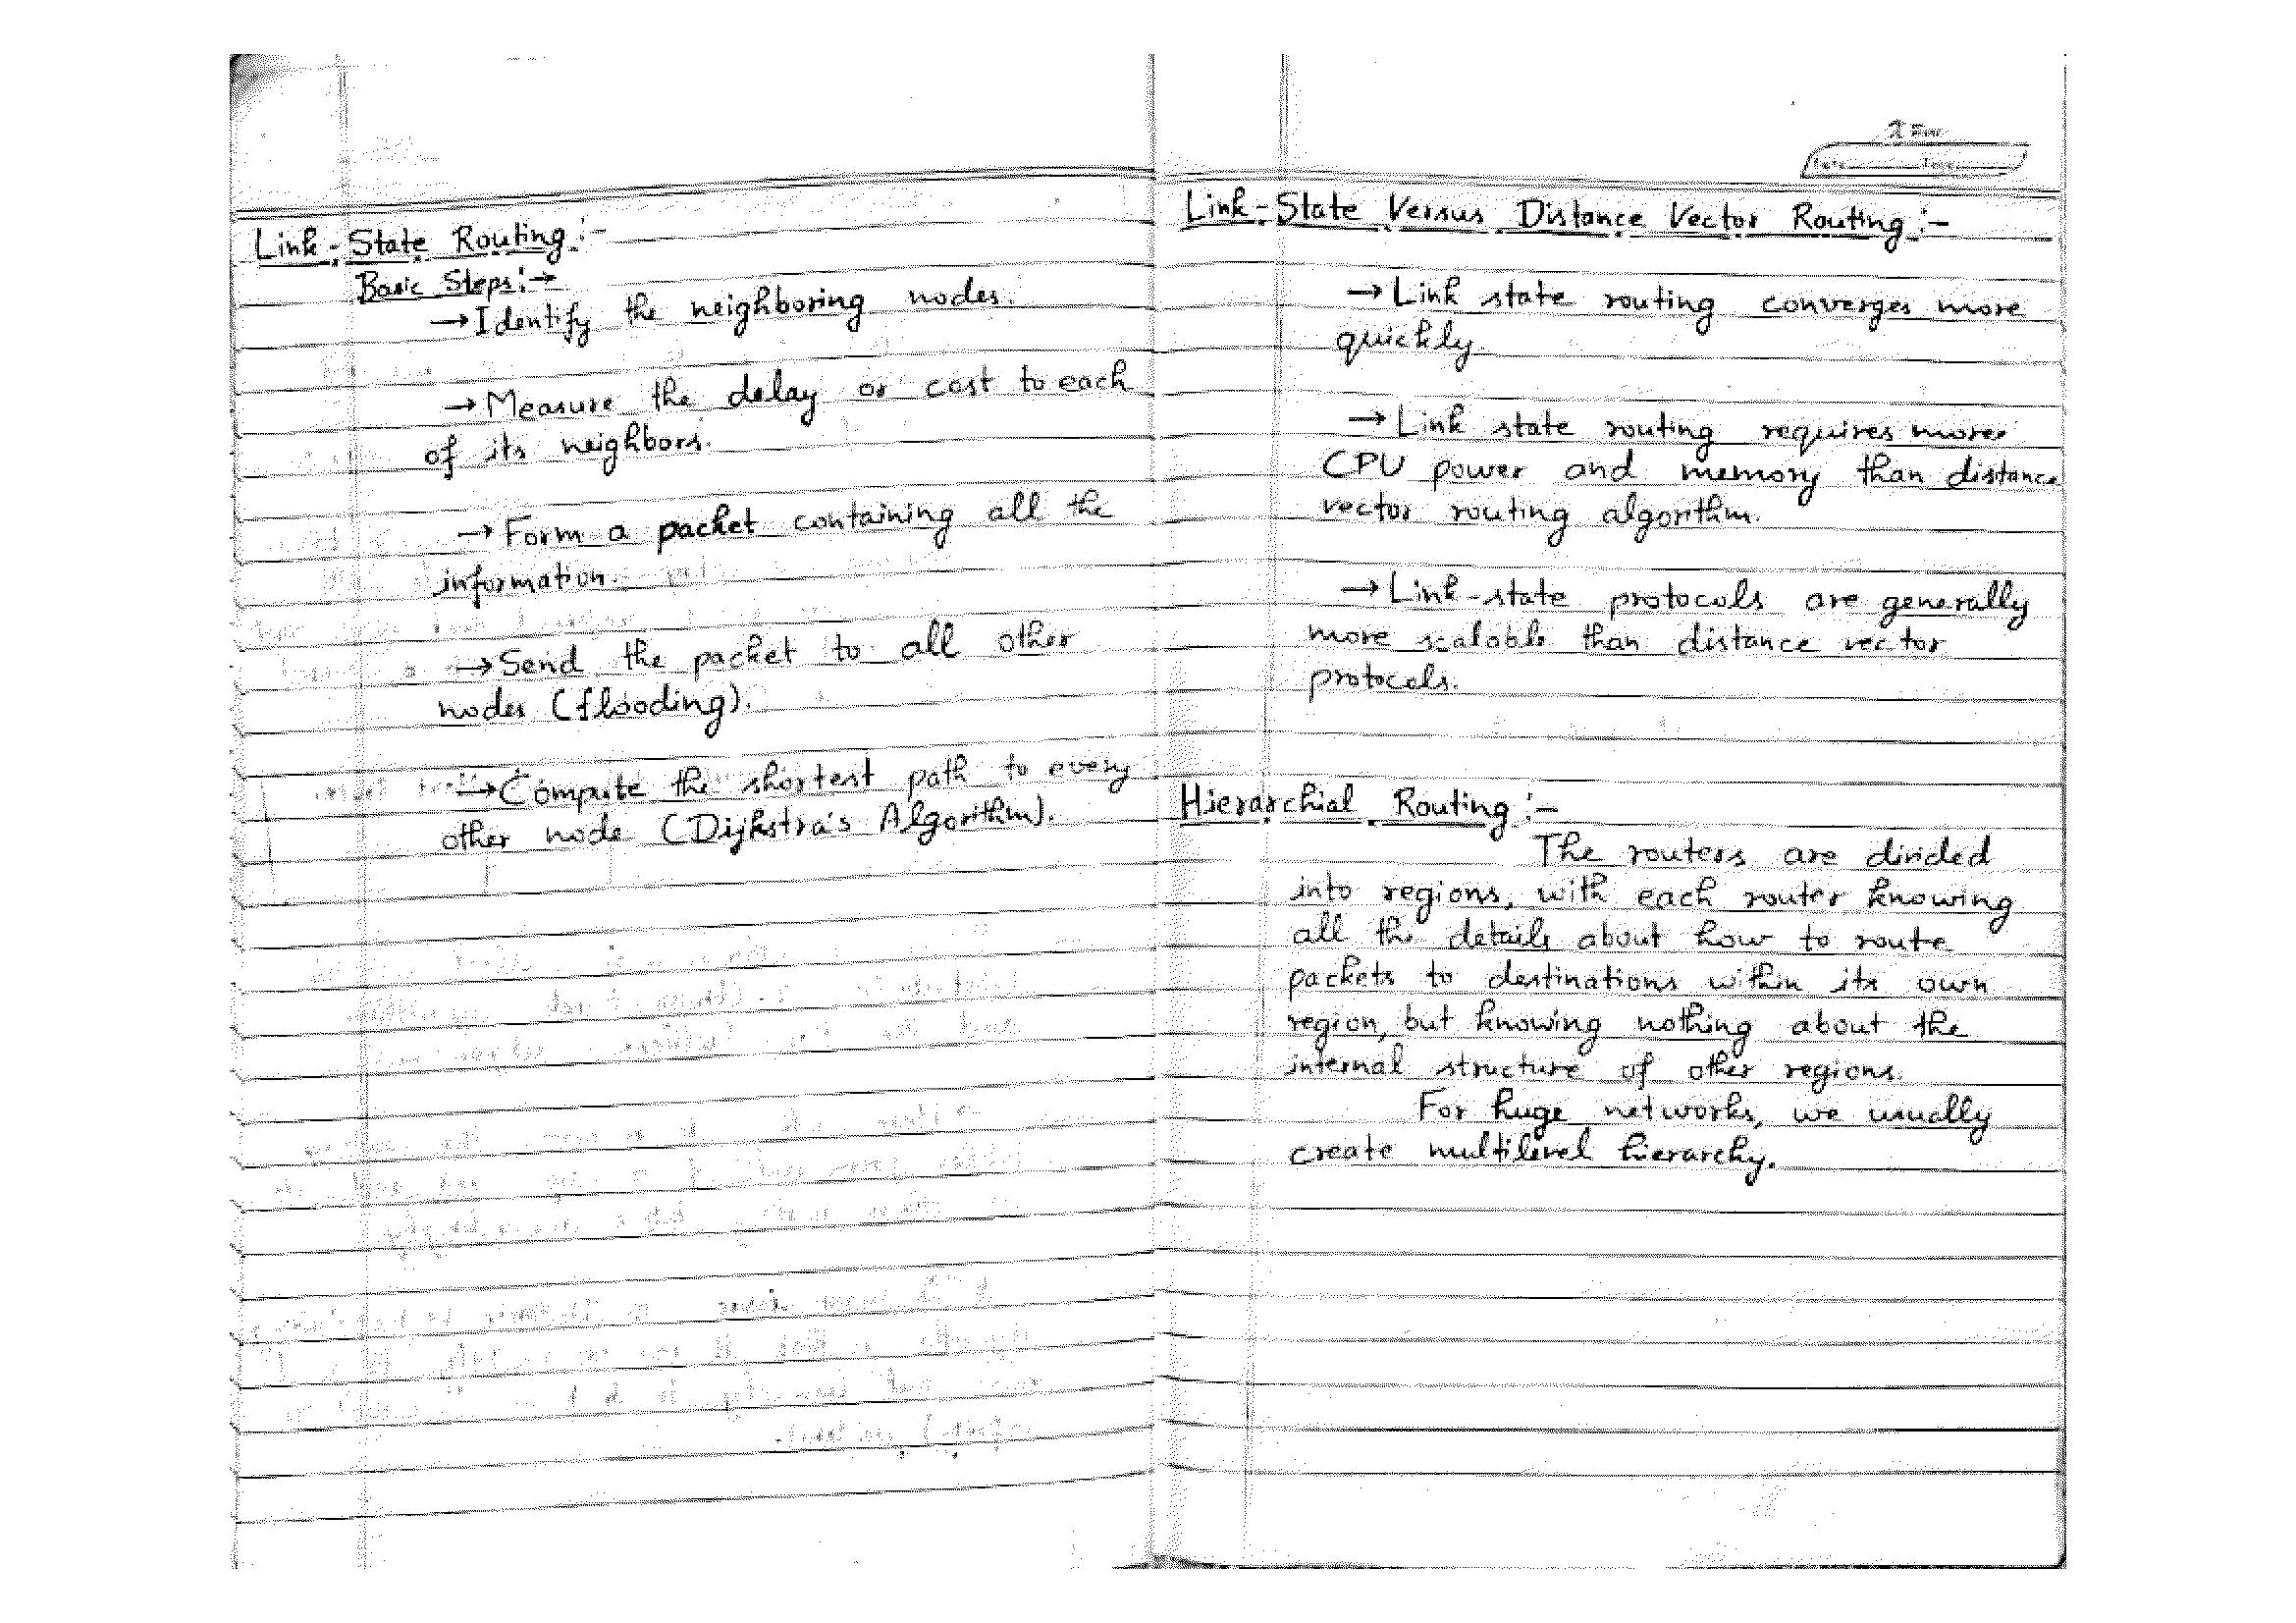 Link-State Routing:-
Basic Steps:→
→Identify the neighboring nodes.
→Measure the delay or cost to each
of its neighbors.
→Form a packet containing all the
information.
→Send the packet to all other
nodes (flooding).
→Compute the shortest path to every
other node (Dijkstra's Algorithm).
Link-State Versus Distance Vector Routing:-
→Link state routing converges more
quickly.
→Link state routing requires more
CPU power and memory than distance
vector routing algorithm.
→Link-state protocols are generally
more scalable than distance vector
protocols.
Hierarchial Routing:-
The routers are divided
into regions, with each router knowing
all the details about how to route
packets to destinations within its own
region, but knowing nothing about the
internal structure of other regions.
For huge networks, we usually
create multilevel hierarchy.